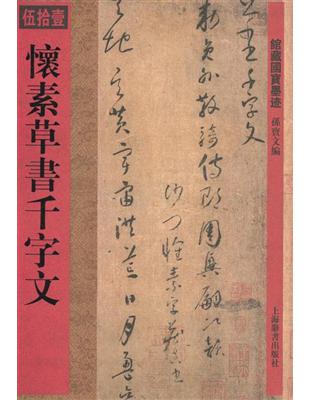 伍拾壹
懷素草書千字文
館藏國寶墨迹
孫寶文編
上海辭書出版社
千字文
員外散騎侍郎周興嗣次韻
沙門懷素字藏真書
天地玄黃宇宙洪荒日月盈